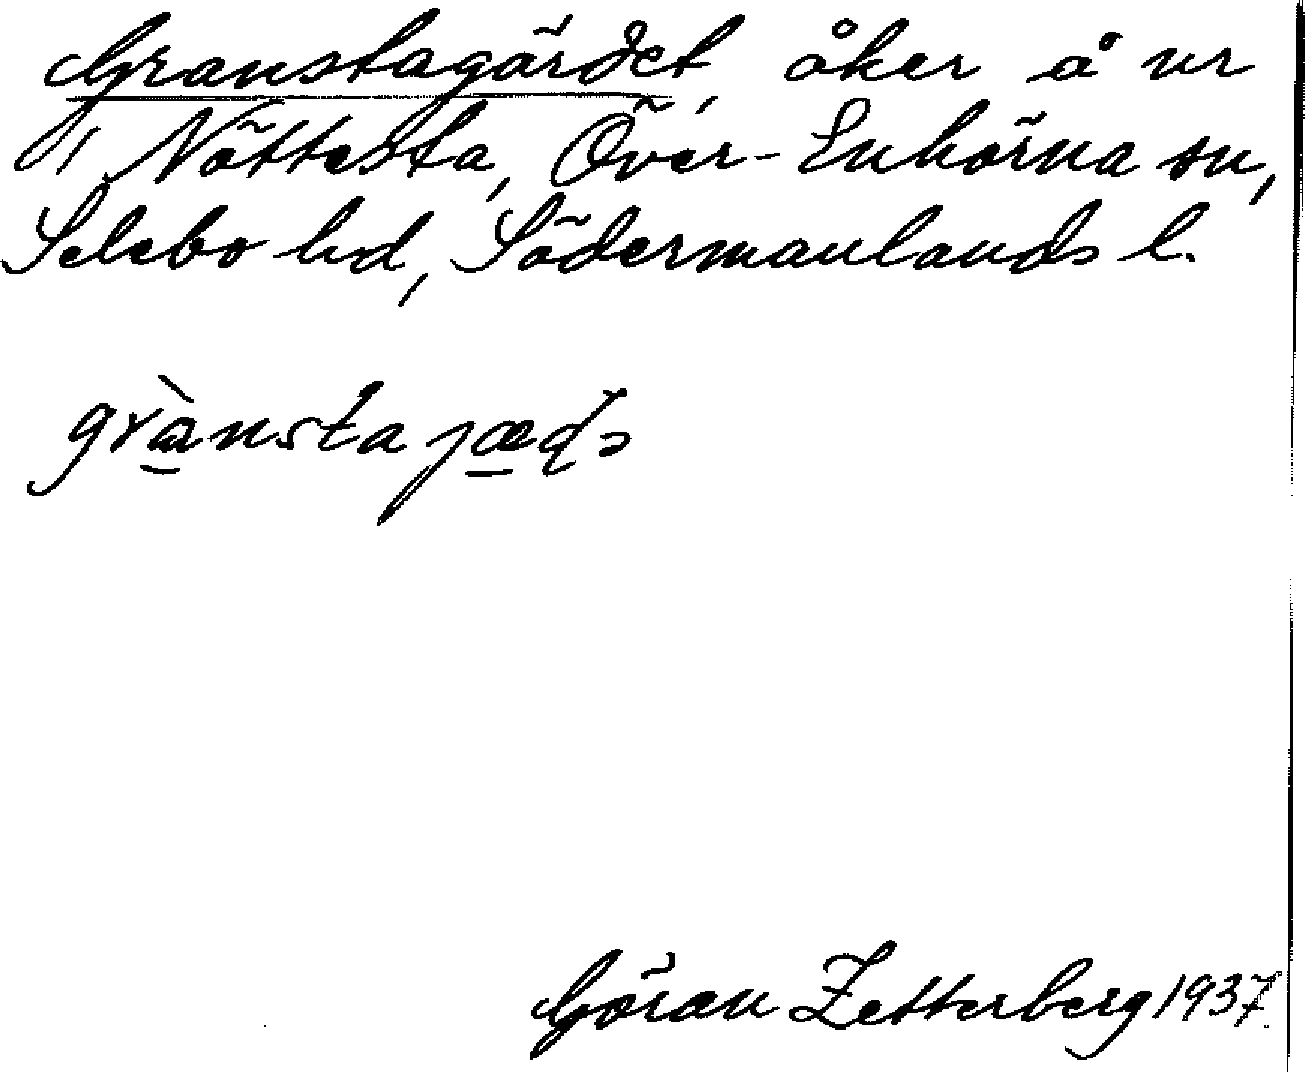 Granstagärdet, åker å ur
// Nöttesta, Över-Enhörna sn,
Selebo hd, Södermanlands l.
grànstajæḍə
Göran Zetterberg 1937.